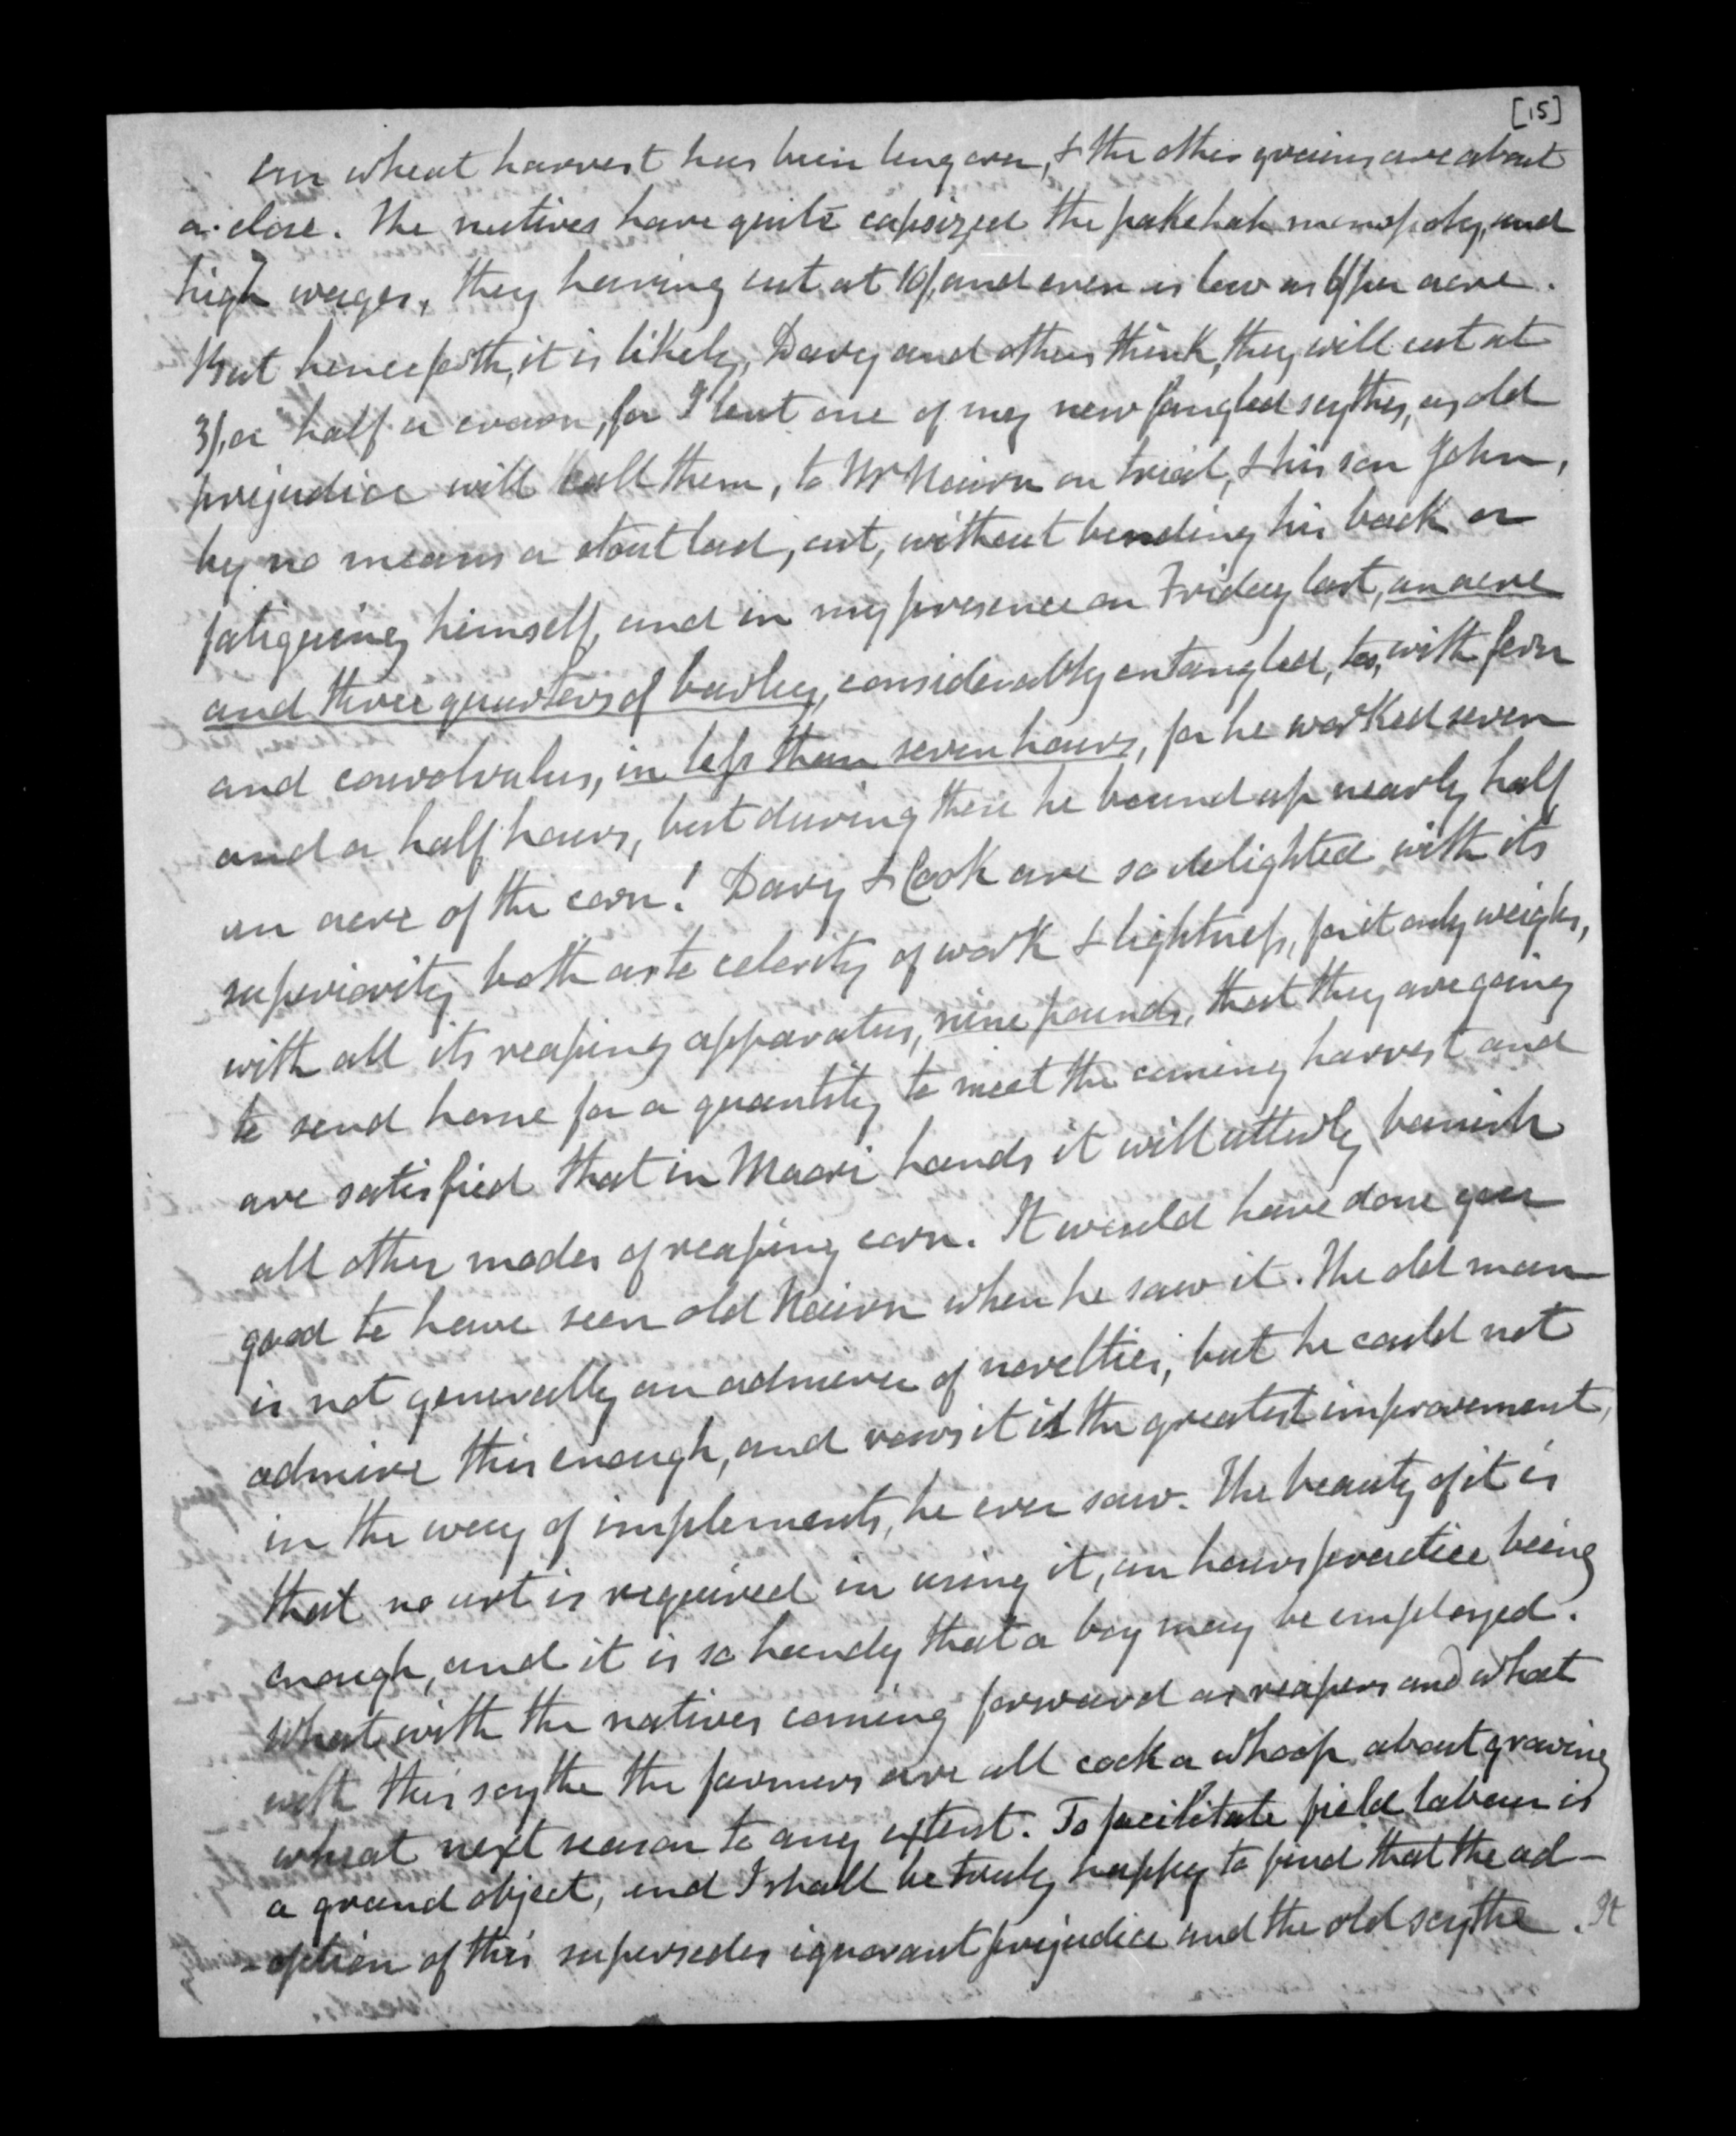 [15]
Our wheat harvest has been long over, & the other grains are about
a close. The natives have quite capsized the pakehah monopoly, and
high wages, they having cut at 10/, and even as low as 6/ per acre.
But henceforth, it is likely, Davy and others think, they will cut at
3/, or half a crown, for I lent one of my new fangled scythes, as old
prejudice will call them, to Mr Nairn on trial, & his son John,
by no means a stout lad, cut, without bending his back or
fatigueing himself, and in my presence on Friday last, an acre
and three quarters of barley, considerably entangled, too, with fern
and convolvulus, in less than seven hours, for he worked seven
and a half hours, but during these he bound up nearly half
an acre of the corn! Davy & Cook are so delighted with its
superiority both as to celerity of work & lightness, for it only weighs,
with all its reaping apparatus, nine pounds, that they are going
to send home for a quantity to meet the coming harvest and
are satisfied that in Maori hands it will utterly banish
all other modes of reaping corn. It would have done you
good to have seen old Nairn when he saw it. The old man
is not generally an admirer of novelties, but he could not
admire this enough, and vows it is the greatest improvement,
in the way of implements, he ever saw. The beauty of it is
that no art is required in using it, an hours practice being
enough, and it is so handy that a boy may be employed.
What with the natives coming forward as reapers and what
with this scythe the farmers are all cock a whoop about growing
wheat next season to any extent. To facilitate field labour is
a grand object, and I shall be truly happy to find that the ad-
-option of this supersedes ignorant prejudice and the old scythe. It